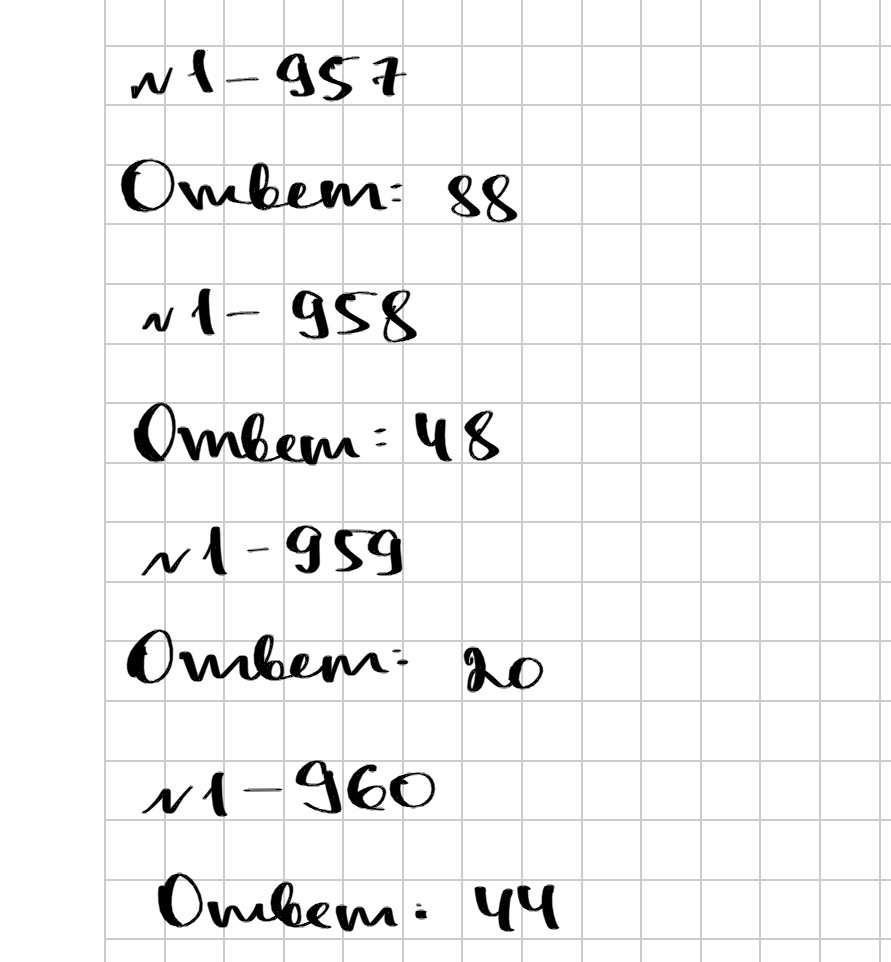 N1-957
Ответ: 88
N1-958
Ответ: 48
N1-959
Ответ: 20
N1-960
Ответ: 44